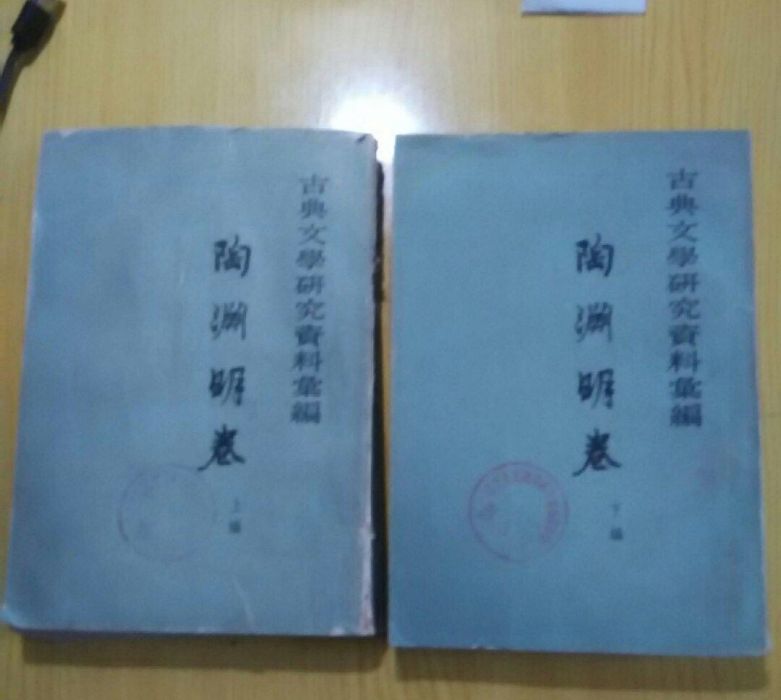 古典文學研究資料彙編
陶渊明卷
上編
古典文學研究資料彙編
陶渊明卷
下編